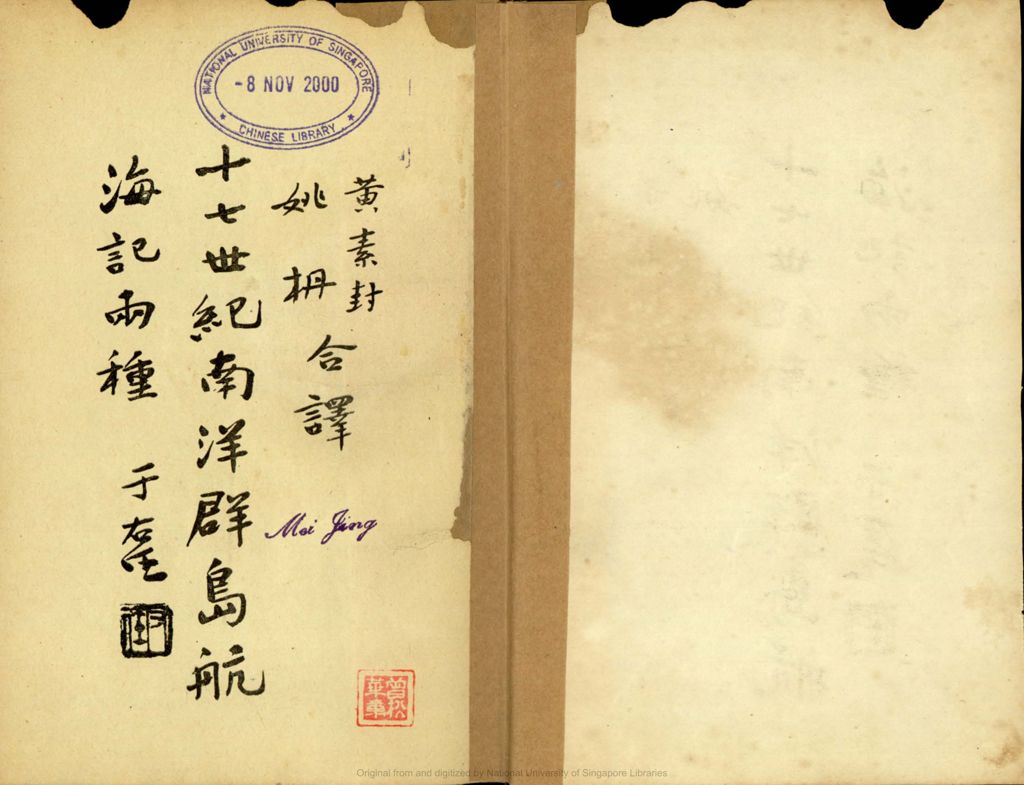 NATIONAL UNIVERSITY OF SINGAPORE
-8 NOV 2000
★ CHINESE LIBRARY ★
黃素封
姚枬
合譯
十七世紀南洋群島航
海記兩種
于右任
Mei Jing
Original from and digitized by National University of Singapore Libraries